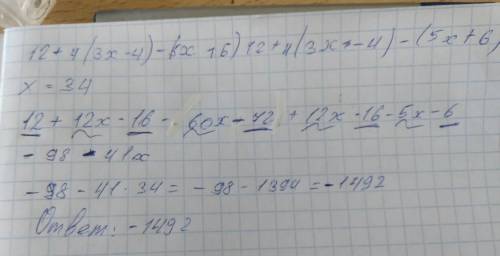 12 + 4(3x-4)-(5x+6)12+4(3x-4)-(5x+6)
x = 34
12 + 12x - 16 - 60x - 72 + 12x - 16 - 5x - 6
- 98 - 41x
- 98 - 41 · 34 = - 98 - 1394 = - 1492
Ответ: - 1492